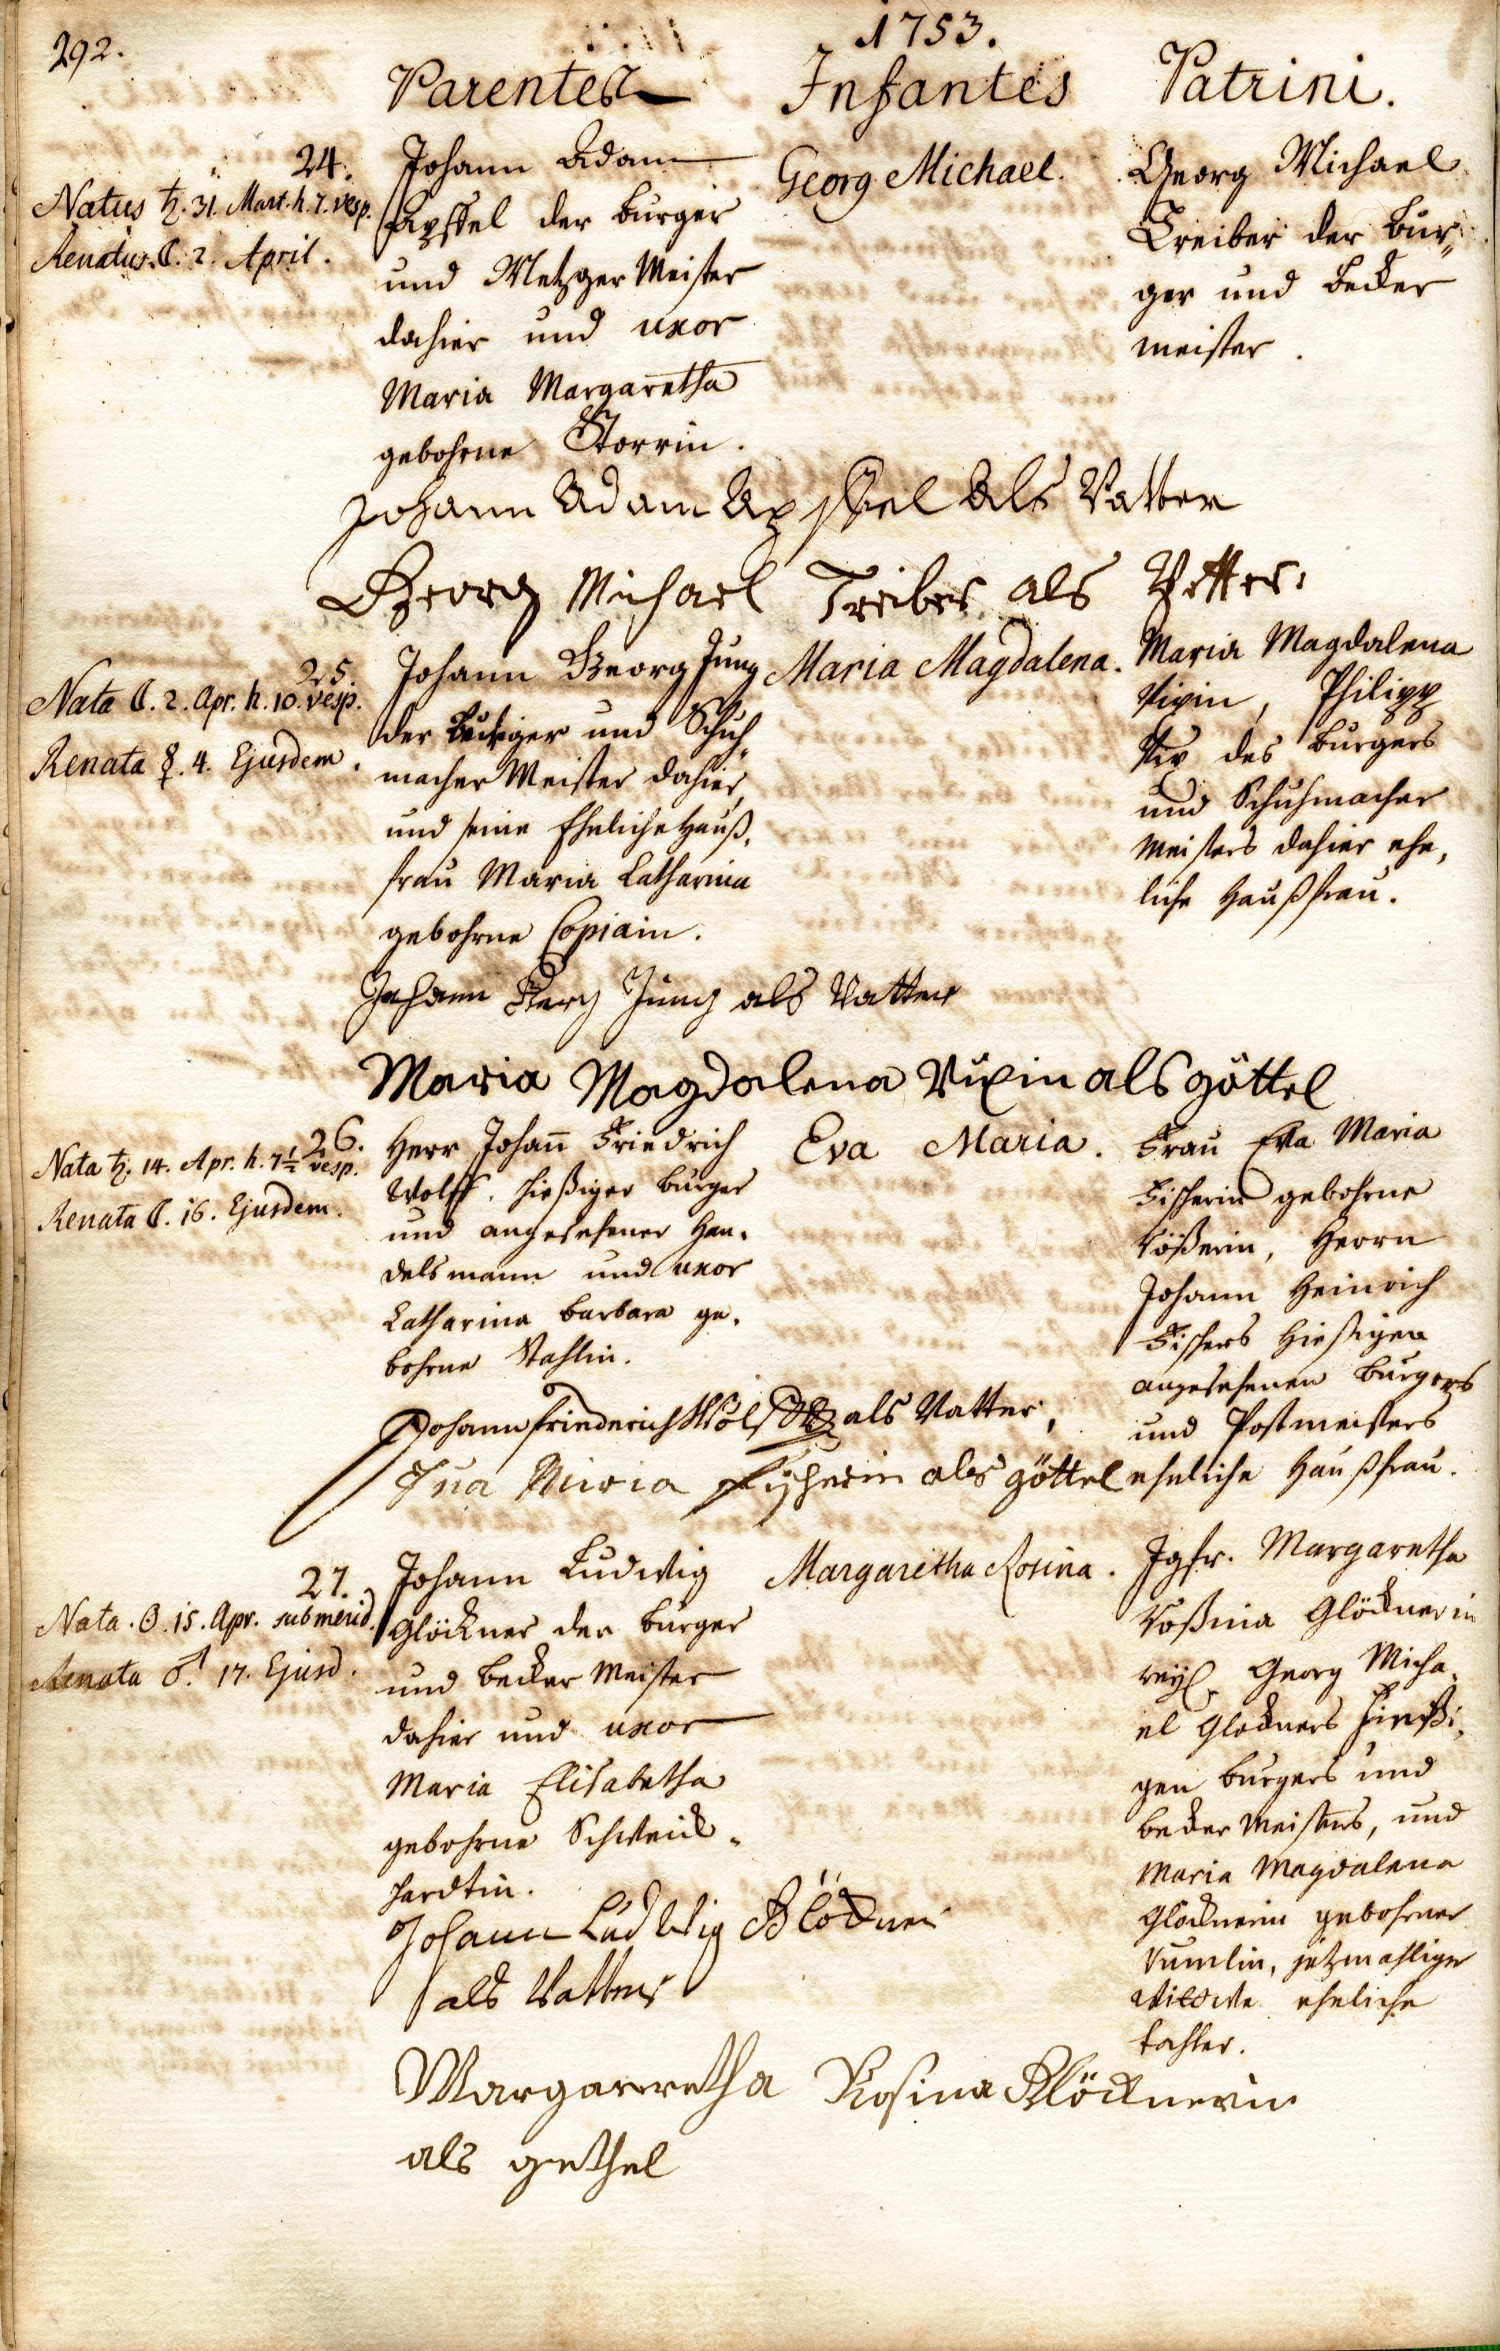 292.
1753.
Parentes
Infantes
Patrini.
24.
Natus ♄. 31. Mart. h. 7. vesp.
Renatus ☾. 2. April.
Johann Adam
Apffel der burger
und Metzger Meister
dahier und uxor
Maria Margaretha
gebohrne Storrin.
Georg Michael.
Georg Michael
Treiber der bur„
ger und becker
meister.
Johann Adam Apffel als Vatter
Georg Michael Treiber als Petter.
25.
Nata ☾. 2. Apr. h. 10. vesp.
Renata ☿. 4. Ejusdem.
Johann Georg Jung
der burger und Schuh„
macher Meister dahier,
und seine Eheliche Hauß„
frau Maria Catharina
gebohrne Copiain.
Maria Magdalena.
Maria Magdalena
Vixin, Philipp
Vix des burgers
und Schuhmacher
Meisters dahier ehe„
liche Haußfrau.
Johann Gerg Jung als Vatter
Maria Magdalena Vixin als göttel
26.
Nata ♄. 14. Apr. h. 7½ vesp.
Renata ☾. 16. Ejusdem.
Herr Johan̄ Friedrich
Wolff, hießiger burger
und angesehener Han„
delsmann und uxor
Catharina barbara ge„
bohrne Stahlin.
Eva Maria.
Frau Eva Maria
Fischerin gebohrne
Rößerin, Herrn
Johann Heinrich
Fischers hießigen
angesehenen burgers
und Postmeisters
eheliche Haußfrau.
Johann friederich Wolff als Vatter,
Eva Maria Fischerin als göttel
27.
Nata ☉. 15. Apr. sub merid.
Renata ♂. 17. Ejusd.
Johann Ludwig
Glöckner der burger
und becker Meister
dahier und uxor
Maria Elisabetha
gebohrne Schweick„
hardtin.
Margaretha Rosina.
Jgfr. Margaretha
Roßina Glöcknerin
weyl. Georg Micha„
el Glockners hießi„
gen burgers und
becker Meisters, und
Maria Magdalena
Glöcknerin gebohrner
jetzmahliger
Wittwe eheliche
tochter.
Johann Ludwig Glöckner
als Vatter
Margarretha Rosina Glöcknerin
als gethel